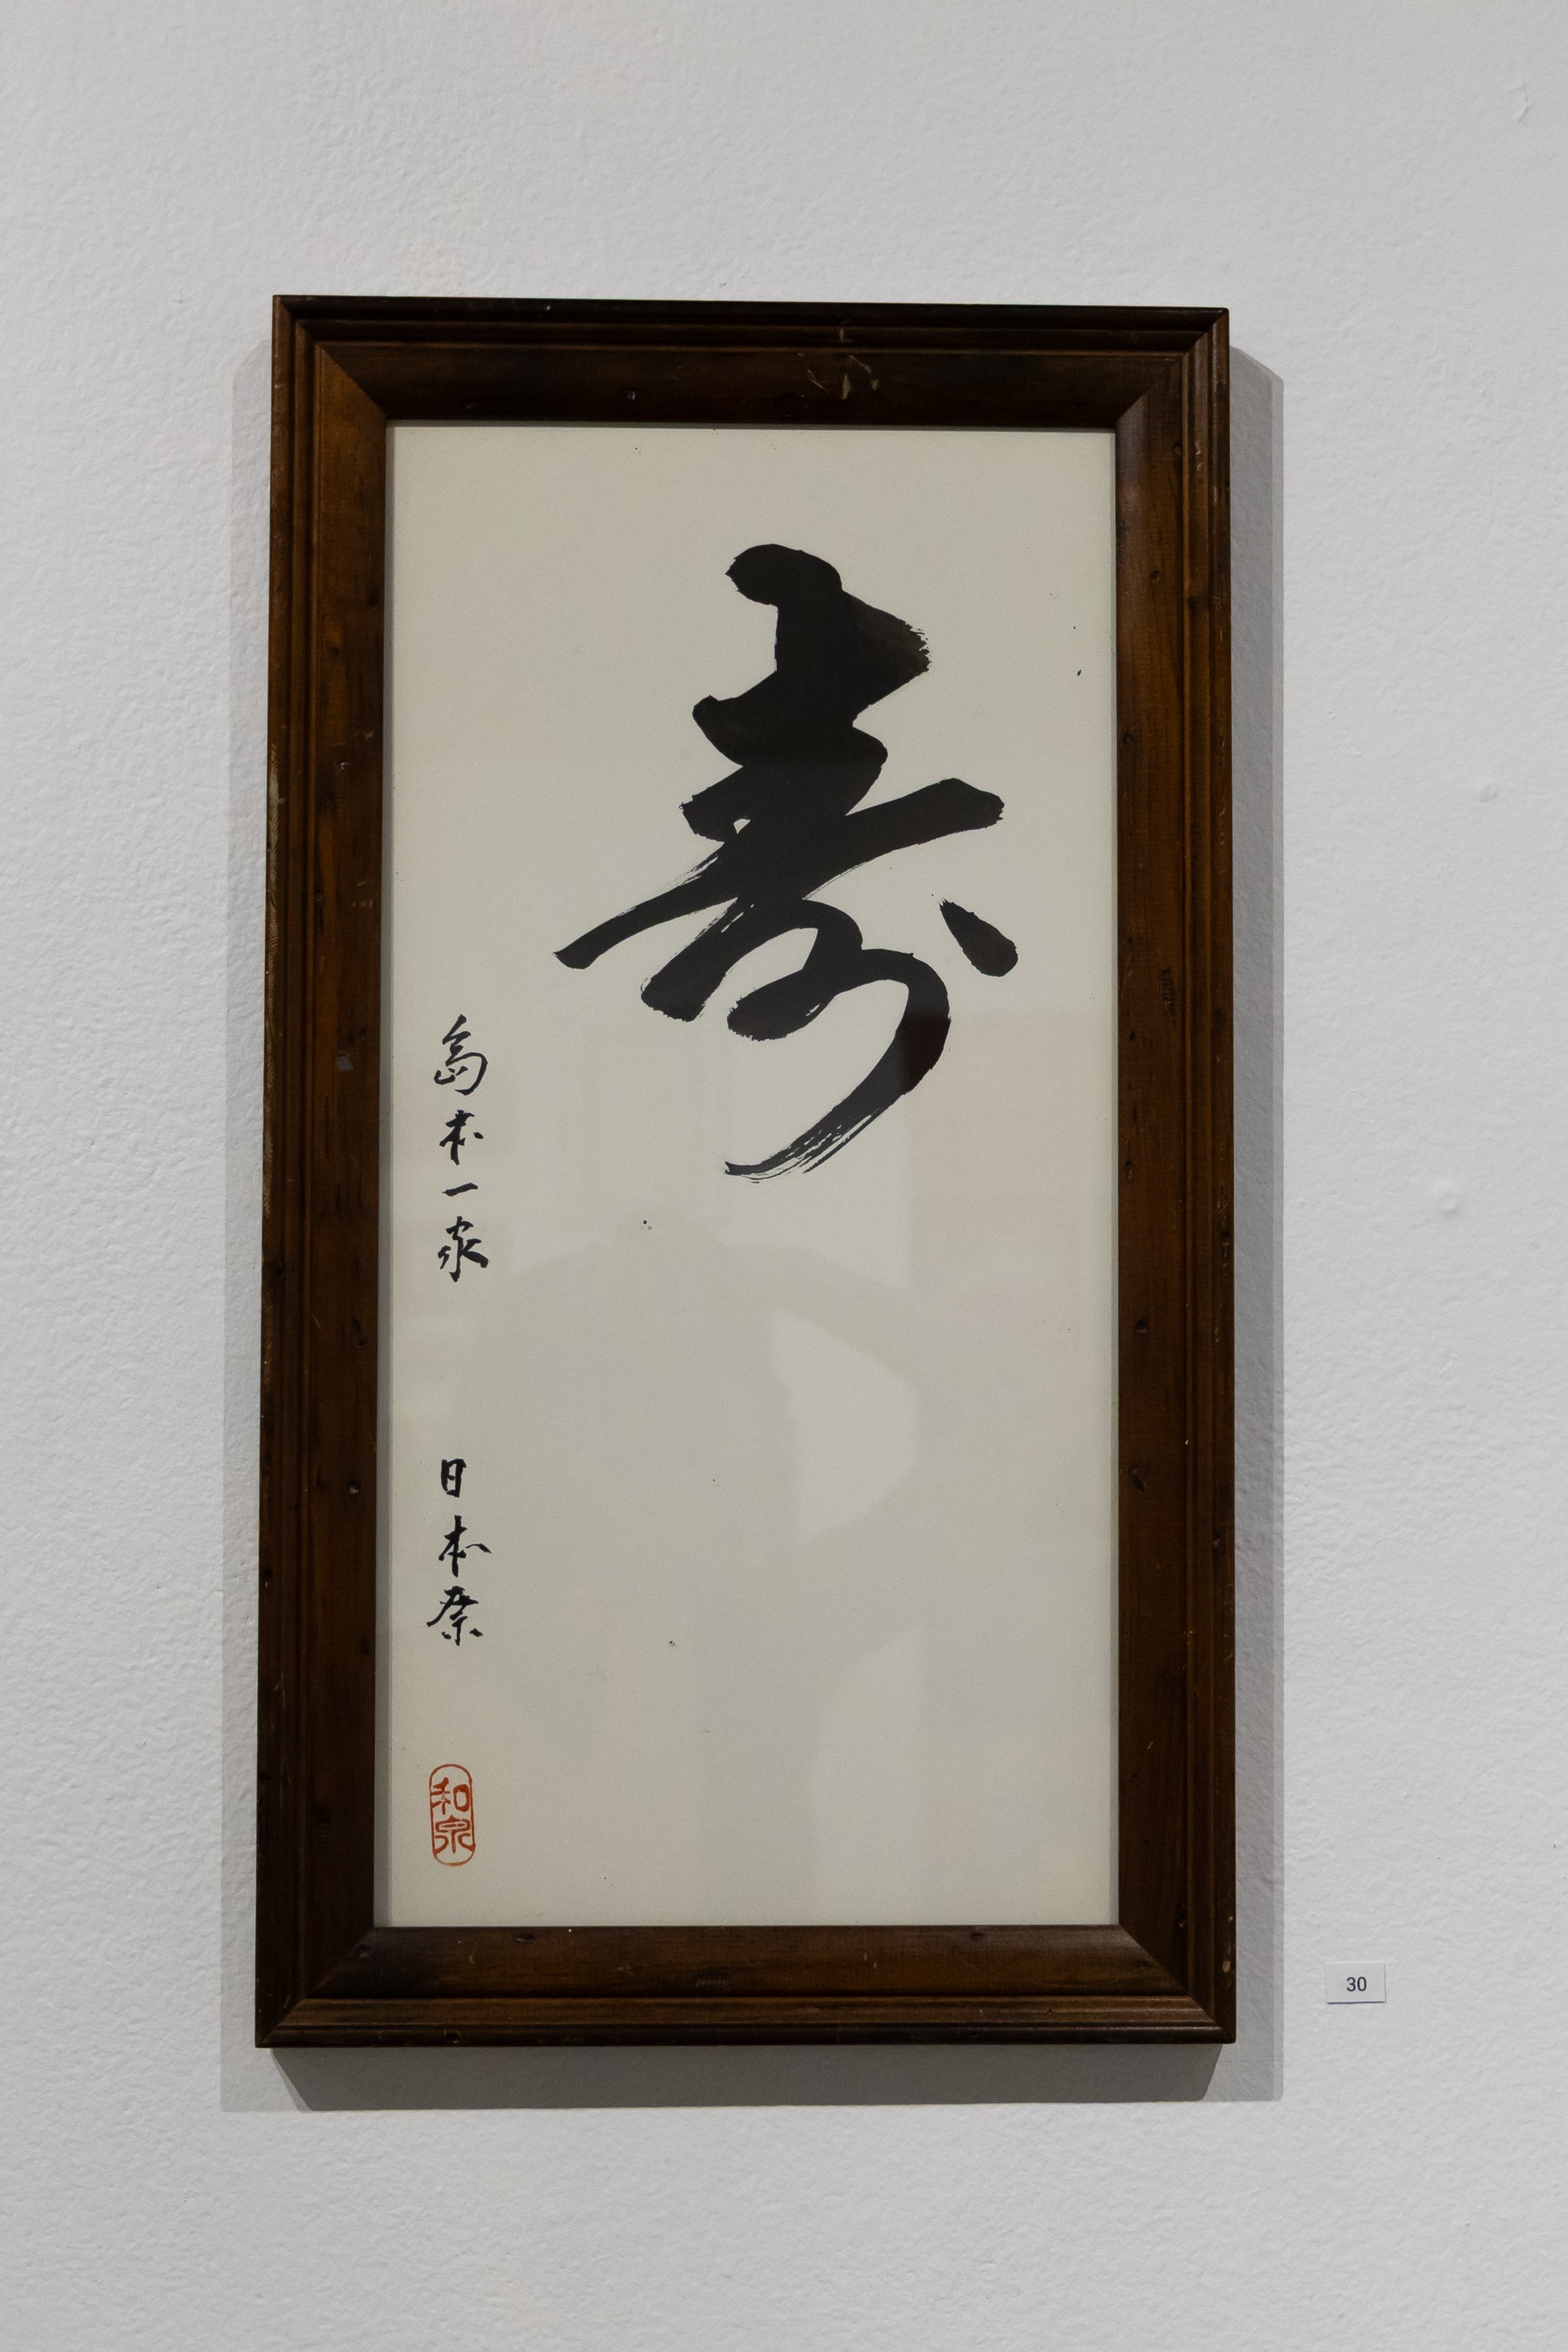 寿
島本一家
日本祭
和泉
30